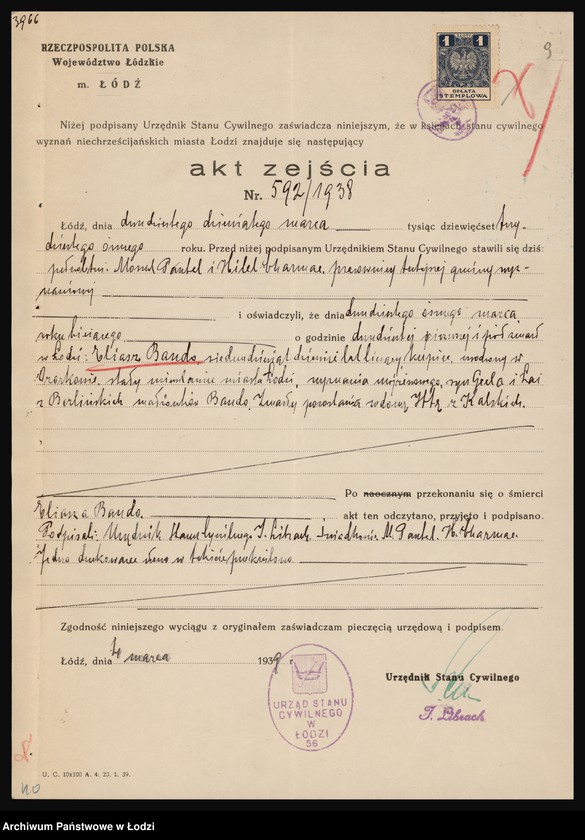 3966
RZECZPOSPOLITA POLSKA
Województwo Łódzkie
m. ŁÓDŹ
1 ZŁOTY 1
OPŁATA
STEMPLOWA
9
Niżej podpisany Urzędnik Stanu Cywilnego zaświadcza niniejszym, że w księgach stanu cywilnego
wyznań niechrześcijańskich miasta Łodzi znajduje się następujący
akt zejścia
Nr. 592/1938
Łódź, dnia dwudziestego dziewiątego marca tysiąc dziewięćset trzy-
dziestego ósmego roku. Przed niżej podpisanym Urzędnikiem Stanu Cywilnego stawili się dziś:
pełnoletni: Pantel i Hilel pracownicy tutejszej gminy wyz-
naniowej
i oświadczyli, że dnia dwudziestego ósmego marca
roku bieżącego o godzinie dwudziestej pierwszej i pół zmarł
w Łodzi: Eliasz Bando, siedemdziesiąt dziewięć lat liczący kupiec, urodzony w
Ozorkowie, stały mieszkaniec miasta Łodzi, wyznania mojżeszowego, syn i
z Berlińskich małżonków Bando. Zmarły pozostawia wdowę z Kalskich.
Po naocznym przekonaniu się o śmierci
Eliasza Bando. akt ten odczytano, przyjęto i podpisano.
Podpisali: Urzędnik Stanu Cywilnego: Świadkowie: M. Pantel. H.
Jedno drukowane słowo w tekście przekreślono.
Zgodność niniejszego wyciągu z oryginałem zaświadczam pieczęcią urzędową i podpisem.
Łódź, dnia 4 marca 1939 r.
Urzędnik Stanu Cywilnego
URZĄD STANU
CYWILNEGO
W
ŁODZI
56
U. C. 10x100 A. 4. 23. 1. 39.
Archiwum Państwowe w Łodzi